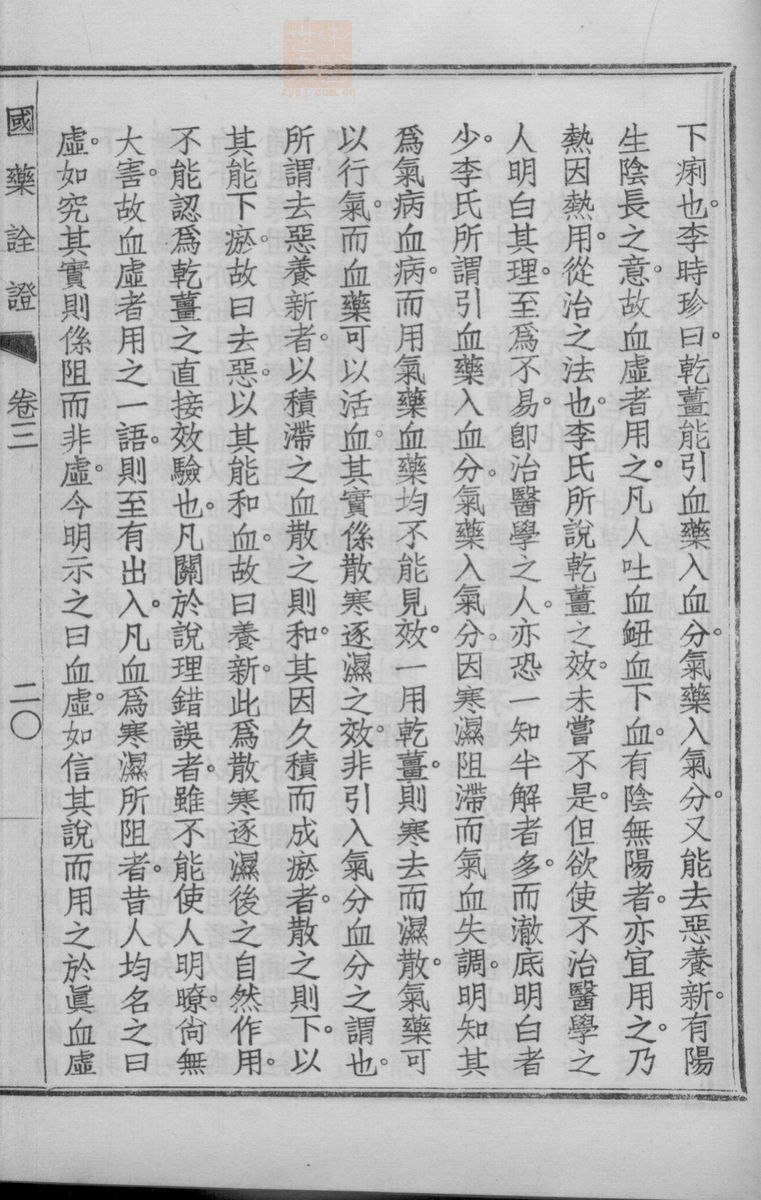 下痢也。李時珍曰。乾薑能引血藥入血分。氣藥入氣分。又能去惡養新。有陽
生陰長之意。故血虛者用之。凡人吐血衄血下血。有陰無陽者。亦宜用之。乃
熱因熱用。從治之法也。李氏所說乾薑之效。未嘗不是。但欲使不治醫學之
人明白其理。至爲不易。卽治醫學之人。亦恐一知半解者多。而澈底明白者
少。李氏所謂引血藥入血分。氣藥入氣分。因寒濕阻滯而氣血失調。明知其
爲氣病血病。而用氣藥血藥均不能見效。一用乾薑。則寒去而濕散。氣藥可
以行氣。而血藥可以活血。其實係散寒逐濕之效。非引入氣分血分之謂也。
所謂去惡養新者。以積滯之血散之則和。其因久積而成瘀者。散之則下。以
其能下瘀。故曰去惡。以其能和血。故曰養新。此爲散寒逐濕後之自然作用。
不能認爲乾薑之直接效驗也。凡關於說理錯誤者。雖不能使人明瞭。尙無
大害。故血虛者用之一語。則至有出入。凡血爲寒濕所阻者。昔人均名之曰
虛。如究其實。則係阻而非虛。今明示之曰血虛。如信其說而用之於眞血虛
國藥詮證
卷三
二〇